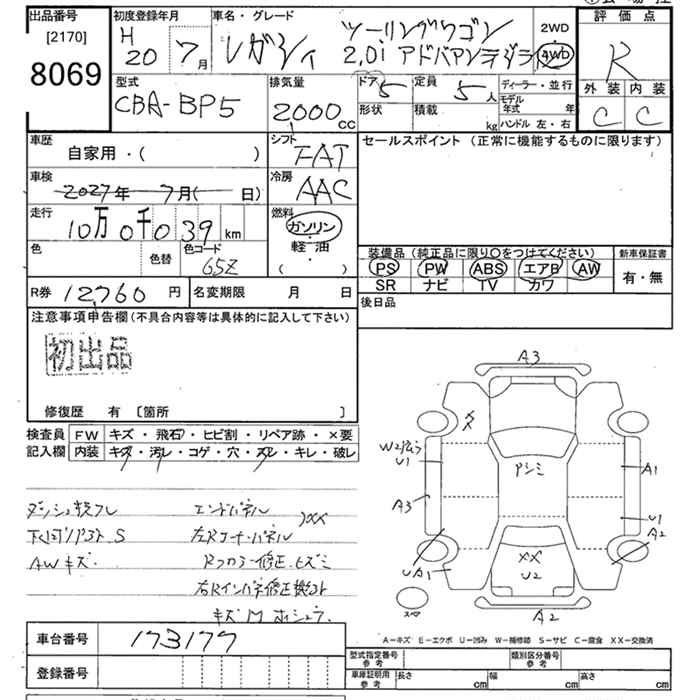 出品番号 初度登録年月 車名・グレード 評価点
[2170] H 20 年 7 月 レガシィ ツーリングワゴン 2WD
8069 2,0i アドバンテジラ 4WD R
型式 排気量 ドア 5 定員 5 人 ディーラー・並行 外装 内装
CBA-BP5 2000 cc 形状 積載 kg モデル年式 年 C C
ハンドル 左・右
車歴 自家用・( ) シフト FAT セールスポイント (正常に機能するものに限ります)
車検 2027年 7月( 日) 冷房 AAC
走行 10万0千039 km 燃料 ガソリン・軽油・( )
色 色替 色コード 65Z
装備品 (純正品に限り○をつけてください) 新車保証書
PS PW ABS エアB AW 有・無
SR ナビ TV カワ
R券 12,760 円 名変期限 月 日 後日品
注意事項申告欄 (不具合内容等は具体的に記入して下さい)
初出品
修復歴 有 [箇所 ]
検査員 FW キズ・飛石・ヒビ割・リペア跡・×要
記入欄 内装 キズ・汚レ・コゲ・穴・スレ・キレ・破レ
A3
W2 U1
A3
アシミ
A1
U1
A2
UA1
XX
U2
スペア
A2
エンドパネル XX
下回リ S 左Rコーナーパネル
AWキズ Rフロアー修正、ヒズミ
キズM
A-キズ E-エクボ U-凹み W-補修跡 S-サビ C-腐食 XX-交換済
車台番号 173177
登録番号
型式指定番号 参考 類別区分番号 参考
車庫証明用 参考 長さ cm 幅 cm 高さ cm